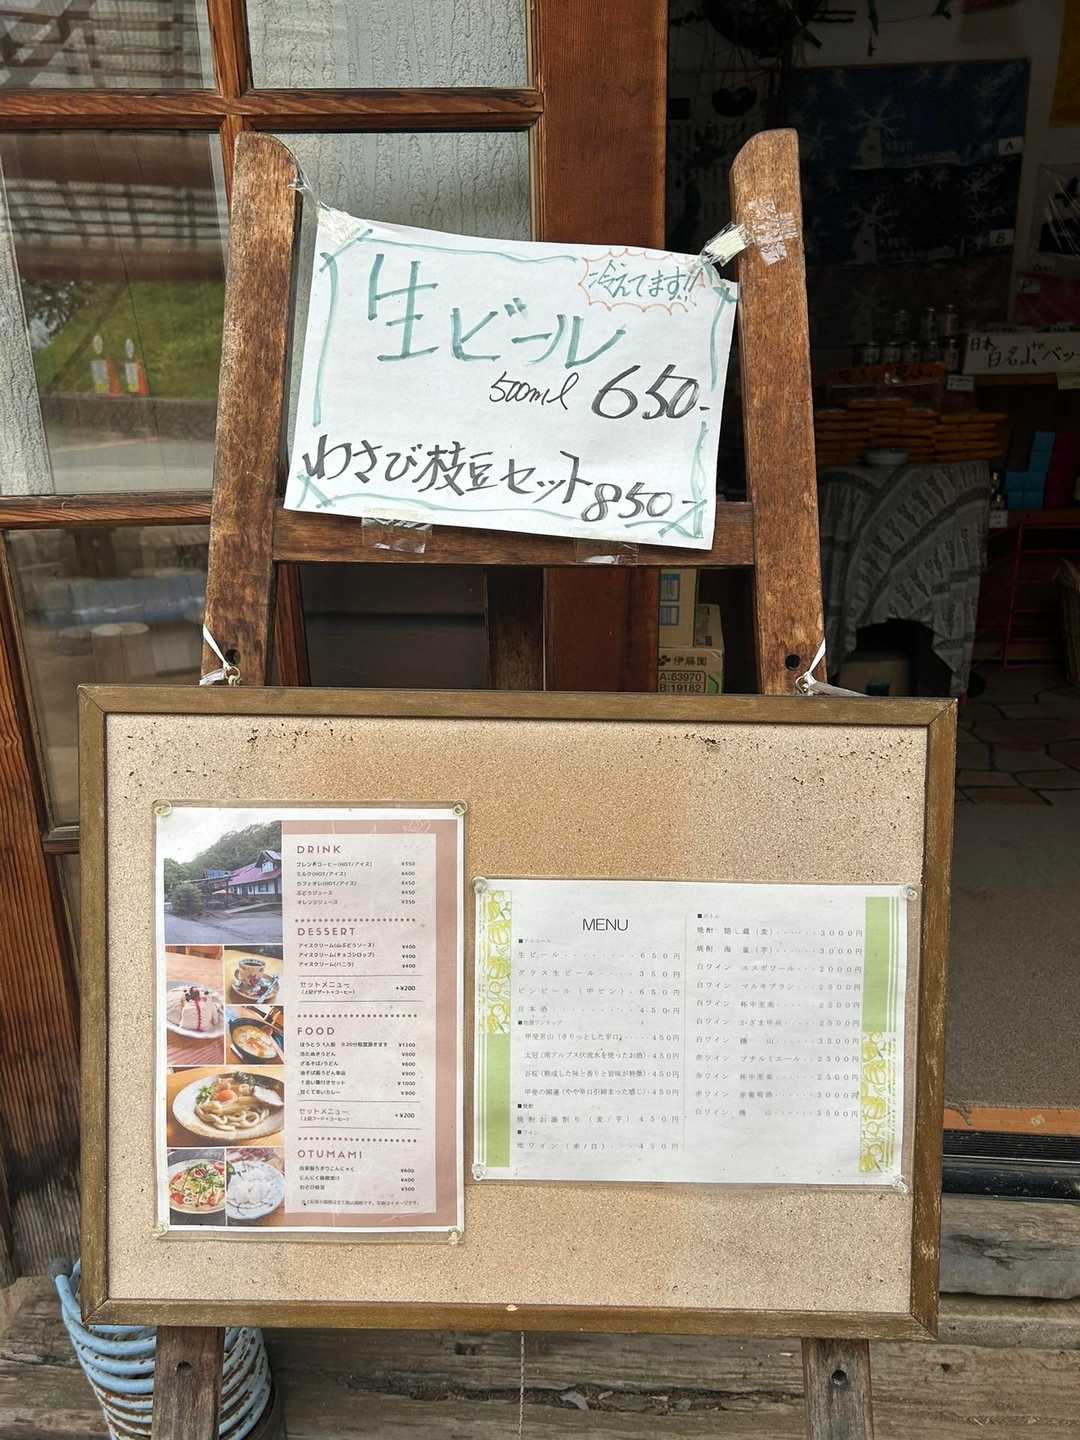 冷えてます!!
生ビール
500ml 650-
わさび枝豆セット850-
日本
百名山バッ
A
B
伊藤園
A:63970
B:19182
DRINK
ブレンドコーヒー(HOT/アイス) ¥350
ミルク(HOT/アイス) ¥400
カフェオレ(HOT/アイス) ¥450
ぶどうジュース ¥450
オレンジジュース ¥350
DESSERT
アイスクリーム(山ぶどうソース) ¥400
アイスクリーム(チョコシロップ) ¥400
アイスクリーム(バニラ) ¥400
セットメニュー +¥200
(上記デザート+コーヒー)
FOOD
ほうとう 1人前 ※20分程度頂きます ¥1200
冷たぬきうどん ¥800
ざるそば/うどん ¥800
¥900
¥1000
甘くて辛いカレー ¥900
セットメニュー +¥200
(上記フード+コーヒー)
OTUMAMI
自家製ちぎりこんにゃく ¥400
にんにく味噌漬け ¥400
わさび枝豆 ¥300
MENU
■アルコール
生ビール・・・・・・・・650円
グラス生ビール・・・350円
ビンビール(中ビン)・650円
日本酒・・・・・・・・・450円
■地酒ワンカップ
甲斐男山(きりっとした辛口)・450円
太冠(南アルプス伏流水を使ったお酒)・450円
谷桜(熟成した味と香りと旨味が特徴)・450円
甲斐の開運(やや辛口引締まった感じ)・450円
■焼酎
焼酎お湯割り(麦/芋)・450円
■ワイン
地ワイン(赤/白)・・・・450円
■ボトル
焼酎 隠し蔵(麦)・・・・・・3000円
焼酎 海童(芋)・・・・・・3000円
白ワイン エスポワール・・・2000円
白ワイン マルキブラン・・・2500円
白ワイン 杯中至楽・・・・2500円
白ワイン かざま甲州・・・・2500円
白ワイン 磯山・・・・・3500円
赤ワイン プチルミエール・・2500円
赤ワイン 杯中至楽・・・・2500円
赤ワイン 赤葡萄酒・・・・3000円
白ワイン 磯山・・・・・3500円